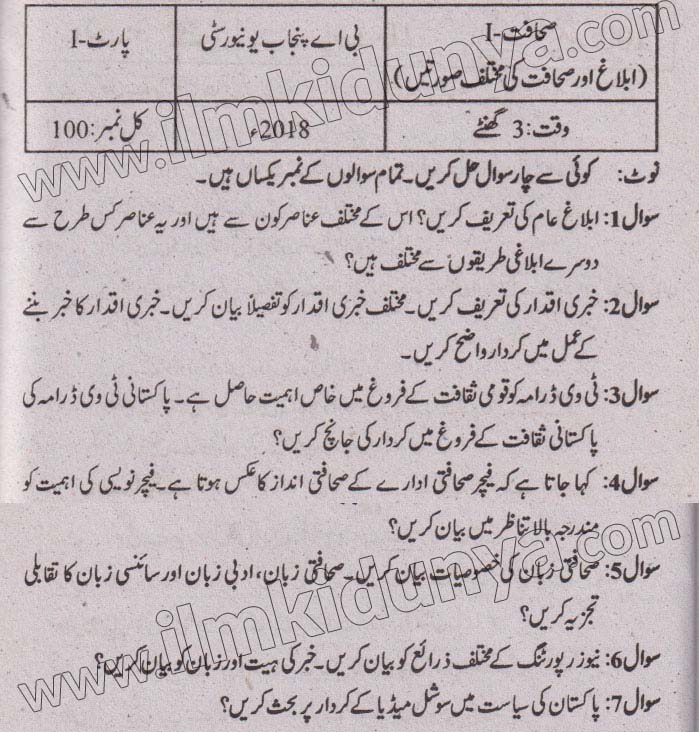 صحافت-I
(ابلاغ اور صحافت کی مختلف صورتیں)
بی اے پنجاب یونیورسٹی
پارٹ-I
وقت: 3 گھنٹے
2018ء
کل نمبر: 100
نوٹ: کوئی سے چار سوال حل کریں۔ تمام سوالوں کے نمبر یکساں ہیں۔
سوال1: ابلاغ عام کی تعریف کریں؟ اس کے مختلف عناصر کون سے ہیں اور یہ عناصر کس طرح سے
دوسرے ابلاغی طریقوں سے مختلف ہیں؟
سوال2: خبری اقدار کی تعریف کریں۔ مختلف خبری اقدار کو تفصیلاً بیان کریں۔ خبری اقدار کا خبر بننے
کے عمل میں کردار واضح کریں۔
سوال3: ٹی وی ڈرامہ کو قومی ثقافت کے فروغ میں خاص اہمیت حاصل ہے۔ پاکستانی ٹی وی ڈرامہ کی
پاکستانی ثقافت کے فروغ میں کردار کی جانچ کریں؟
سوال4: کہا جاتا ہے کہ فیچر صحافتی ادارے کے صحافتی انداز کا عکس ہوتا ہے۔ فیچر نویسی کی اہمیت کو
مندرجہ بالا تناظر میں بیان کریں؟
سوال5: صحافتی زبان کی خصوصیات بیان کریں۔ صحافتی زبان، ادبی زبان اور سائنسی زبان کا تقابلی
تجزیہ کریں؟
سوال6: نیوز رپورٹنگ کے مختلف ذرائع کو بیان کریں۔ خبر کی ہیت اور زبان کو بیان کریں؟
سوال7: پاکستان کی سیاست میں سوشل میڈیا کے کردار پر بحث کریں؟
www.ilmkidunya.com
www.ilmkidunya.com